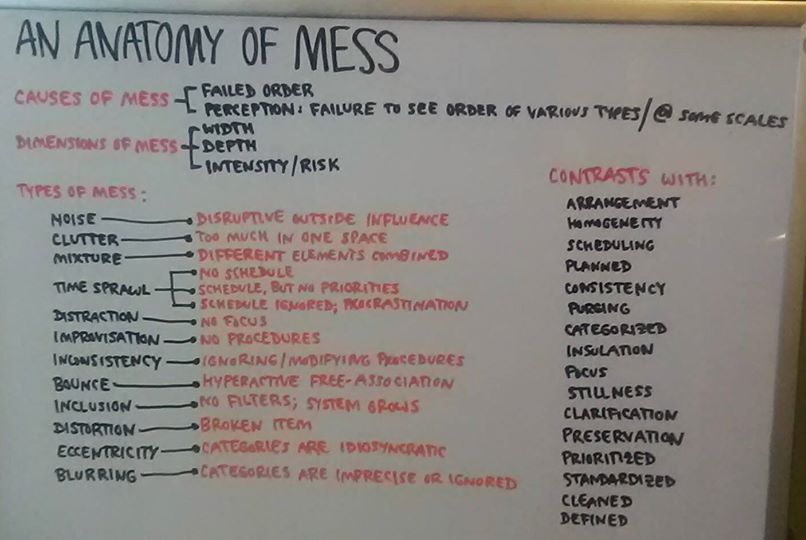 AN ANATOMY OF MESS
CAUSES OF MESS
FAILED ORDER
PERCEPTION: FAILURE TO SEE ORDER OF VARIOUS TYPES/@ SOME SCALES
DIMENSIONS OF MESS
WIDTH
DEPTH
INTENSITY/RISK
TYPES OF MESS:
NOISE DISRUPTIVE OUTSIDE INFLUENCE
CLUTTER TOO MUCH IN ONE SPACE
MIXTURE DIFFERENT ELEMENTS COMBINED
TIME SPRAWL
NO SCHEDULE
SCHEDULE, BUT NO PRIORITIES
SCHEDULE IGNORED; PROCRASTINATION
DISTRACTION NO FOCUS
IMPROVISATION NO PROCEDURES
INCONSISTENCY IGNORING/MODIFYING PROCEDURES
BOUNCE HYPERACTIVE FREE-ASSOCIATION
INCLUSION NO FILTERS; SYSTEM GROWS
DISTORTION BROKEN ITEM
ECCENTRICITY CATEGORIES ARE IDIOSYNCRATIC
BLURRING CATEGORIES ARE IMPRECISE OR IGNORED
CONTRASTS WITH:
ARRANGEMENT
HOMOGENEITY
SCHEDULING
PLANNED
CONSISTENCY
PURGING
CATEGORIZED
INSULATION
FOCUS
STILLNESS
CLARIFICATION
PRESERVATION
PRIORITIZED
STANDARDIZED
CLEANED
DEFINED